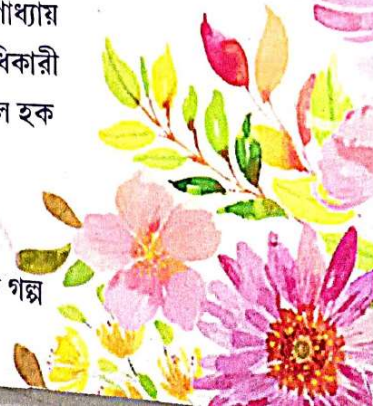 াধ্যায়
ধিকারী
ল হক
গল্প